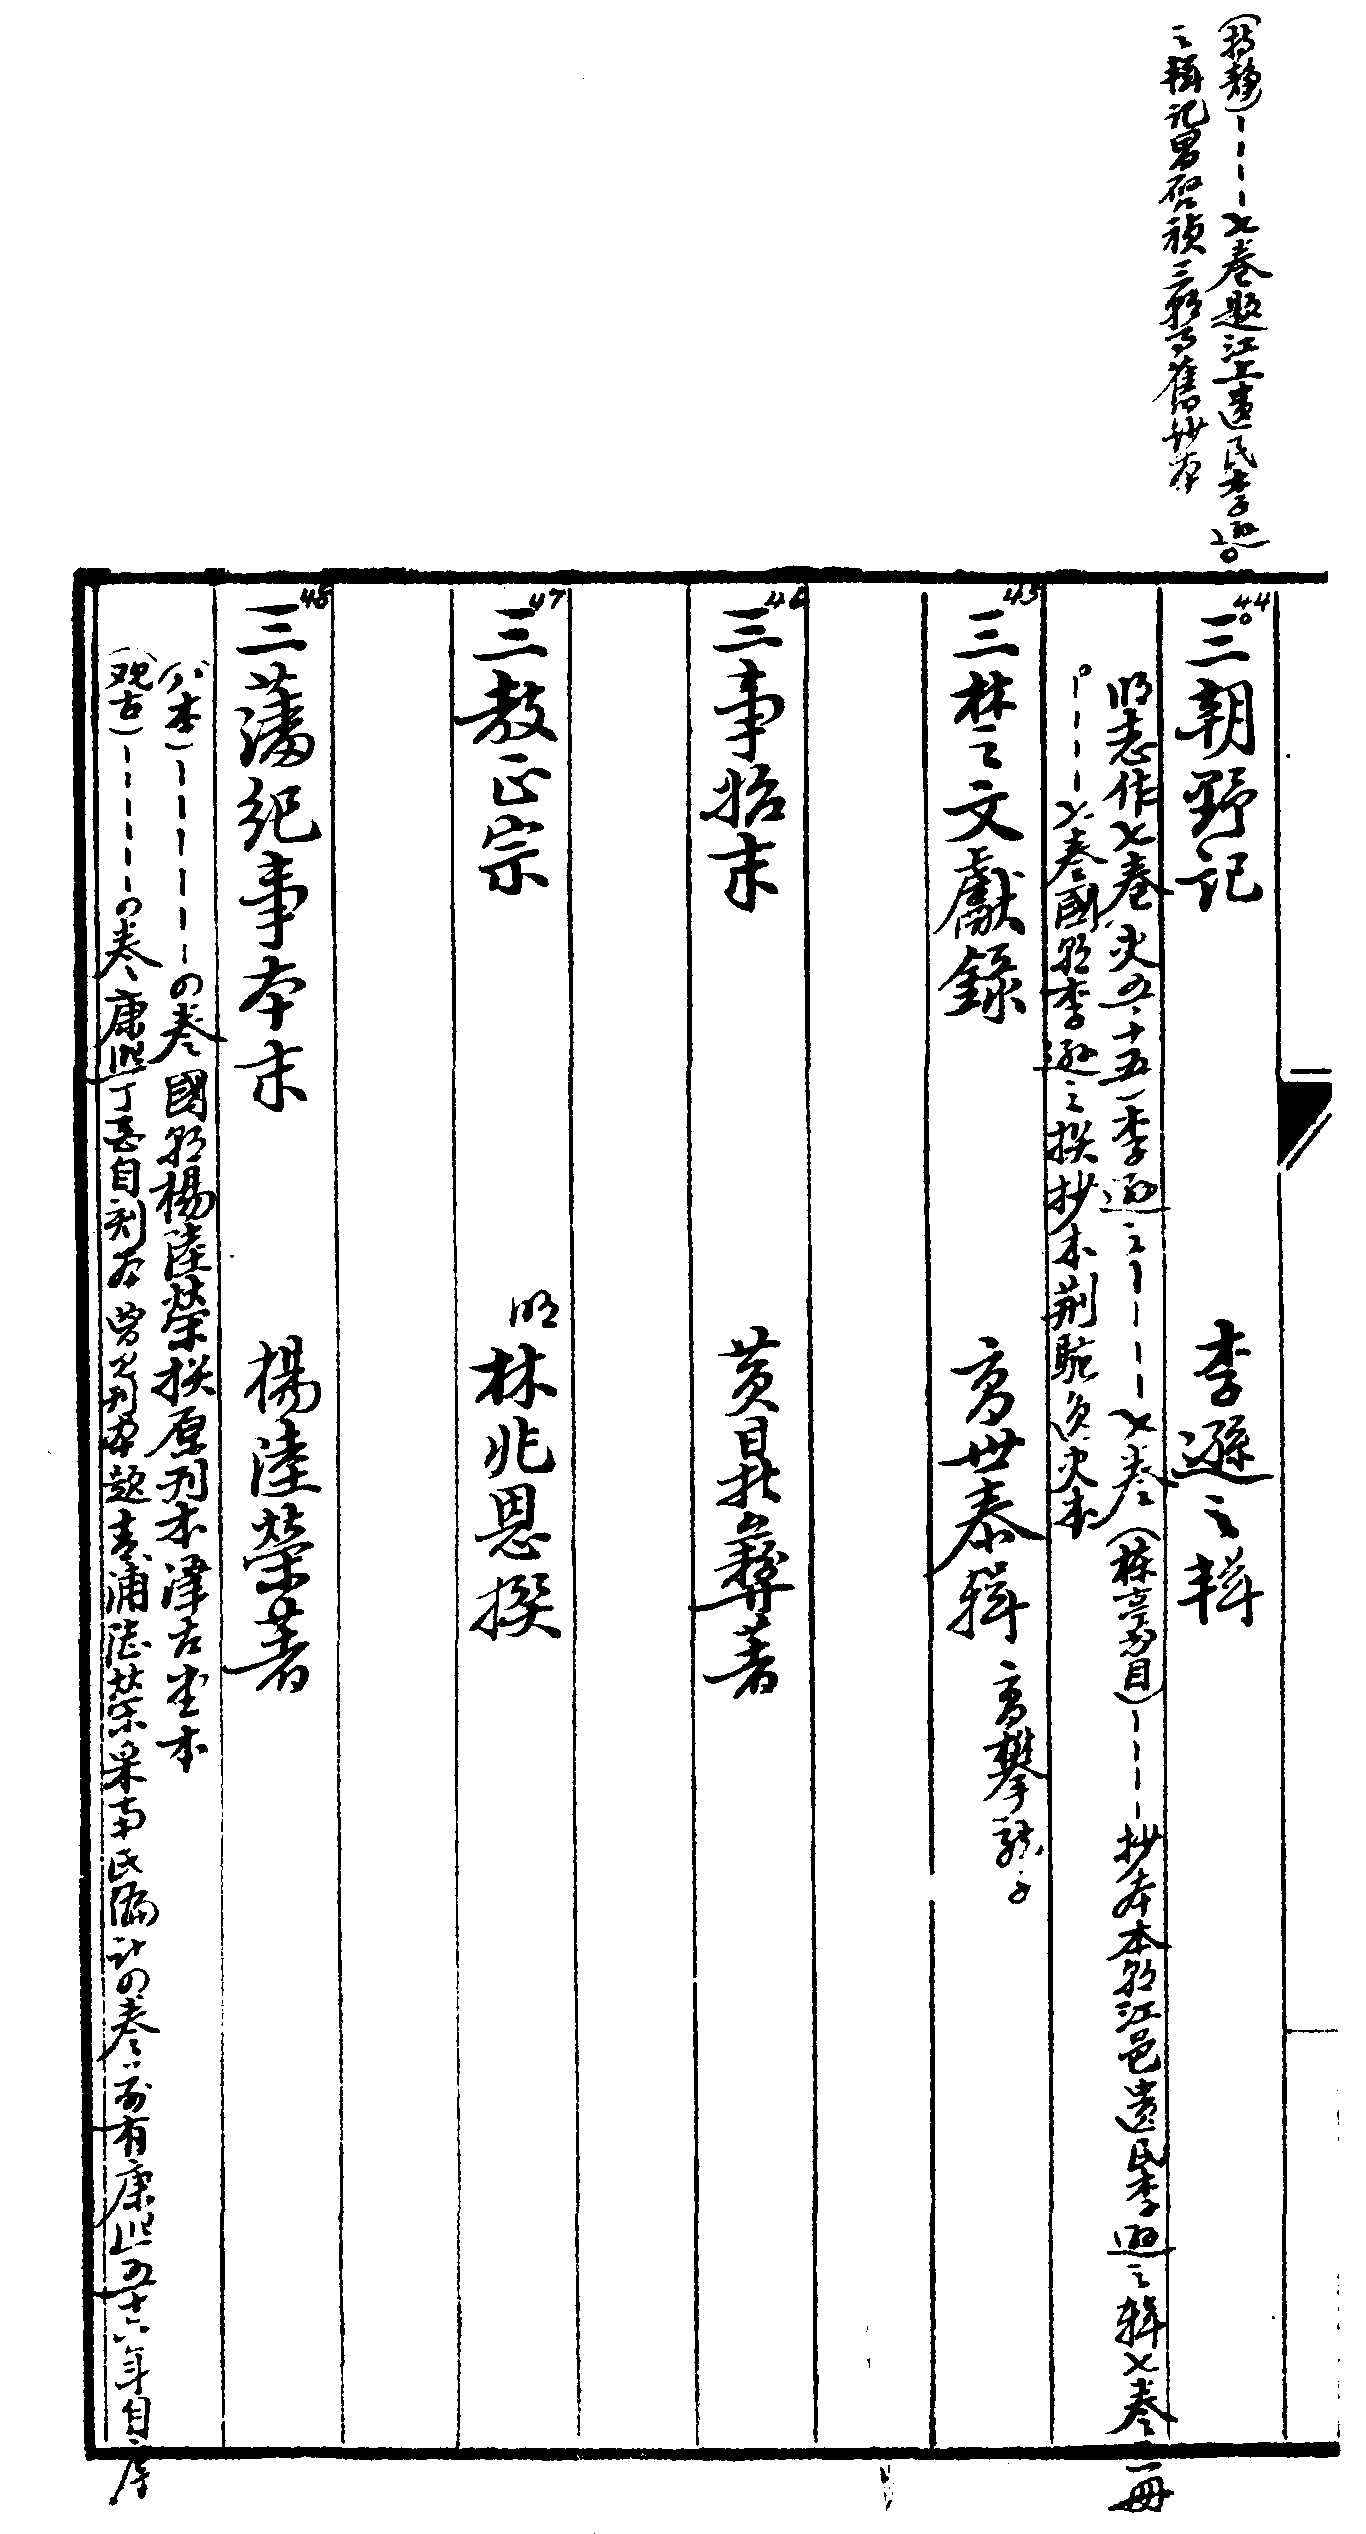 (持静)－－－－七卷題江上遺民李遜。
之輯記畧啓禎三朝事舊抄本
44 三朝野記 李遜之輯
明志作七卷 史五十五 李遜之－－－－七卷(楝亭書目)－－－－抄本本朝江邑遺民李遜之輯七卷一冊
－－－－七卷國朝李遜之撰抄本荊駝逸史本
45 三楚文獻錄 高世泰輯 高攀龍子
46 三事始末 黃
著
47 三教正宗 明林兆恩撰
48 三藩紀事本末 楊陸榮著
(八本)－－－－－四卷國朝楊陸榮撰原刊本澤古堂本
(观古)－－－－－四卷康熙丁酉自刻本
刊本題青浦陸榮采南氏編計四卷前有康熙五十六年自序